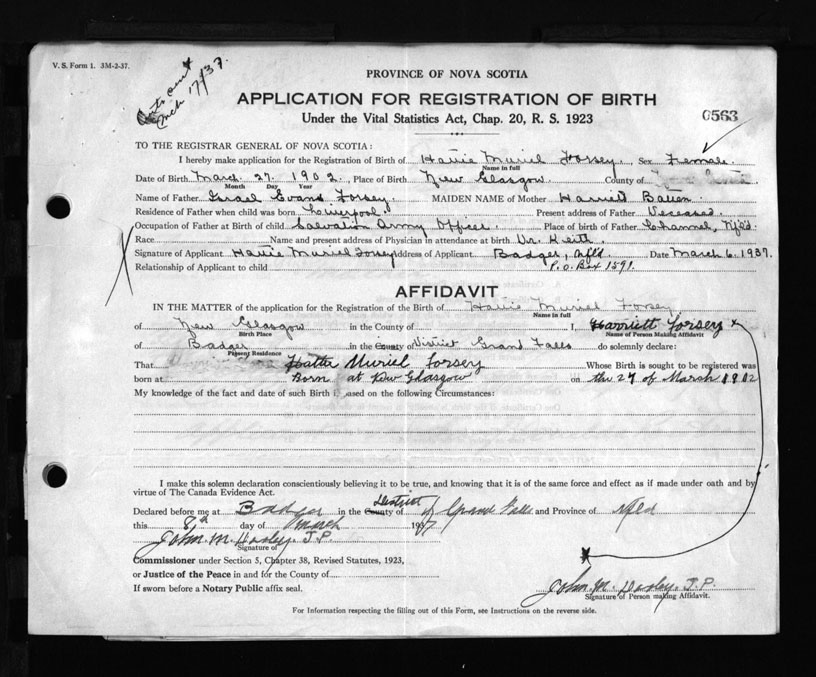 V. S. Form 1. 3M-2-37.
PROVINCE OF NOVA SCOTIA
APPLICATION FOR REGISTRATION OF BIRTH
Under the Vital Statistics Act, Chap. 20, R. S. 1923
0563
TO THE REGISTRAR GENERAL OF NOVA SCOTIA:
I hereby make application for the Registration of Birth of Hattie Muriel Forsey. Sex Female.
Name in full
Date of Birth March 27. 1902. Place of Birth New Glasgow. County of
Month Day Year
Name of Father Israel Evans Forsey. MAIDEN NAME of Mother Harriett
Residence of Father when child was born Liverpool. Present address of Father Deceased.
Occupation of Father at Birth of child Salvation Army Officer. Place of birth of Father Channel, Nfld.
Race Name and present address of Physician in attendance at birth Dr. Keith.
Signature of Applicant Hattie Muriel Forsey Address of Applicant Badger, Nfld. Date March 6. 1937.
Relationship of Applicant to child P.O. Box 1591.
AFFIDAVIT
IN THE MATTER of the application for the Registration of the Birth of Hattie Muriel Forsey
Name in full
of New Glasgow in the County of I, Harriett Forsey x
Birth Place Name of Person Making Affidavit
of Badger in the County of District Grand Falls do solemnly declare:
Present Residence
That Hattie Muriel Forsey Whose Birth is sought to be registered was
born at Born at New Glasgow on the 27 of March 1902
My knowledge of the fact and date of such Birth is based on the following Circumstances:
I make this solemn declaration conscientiously believing it to be true, and knowing that it is of the same force and effect as if made under oath and by
virtue of The Canada Evidence Act.
Declared before me at Badger in the County District of Grand Falls and Province of Nfld
this 8th day of March 1937
John. M. J.P.
Signature of
Commissioner under Section 5, Chapter 38, Revised Statutes, 1923,
or Justice of the Peace in and for the County of
If sworn before a Notary Public affix seal.
John. M. J.P.
Signature of Person making Affidavit.
For Information respecting the filling out of this Form, see Instructions on the reverse side.